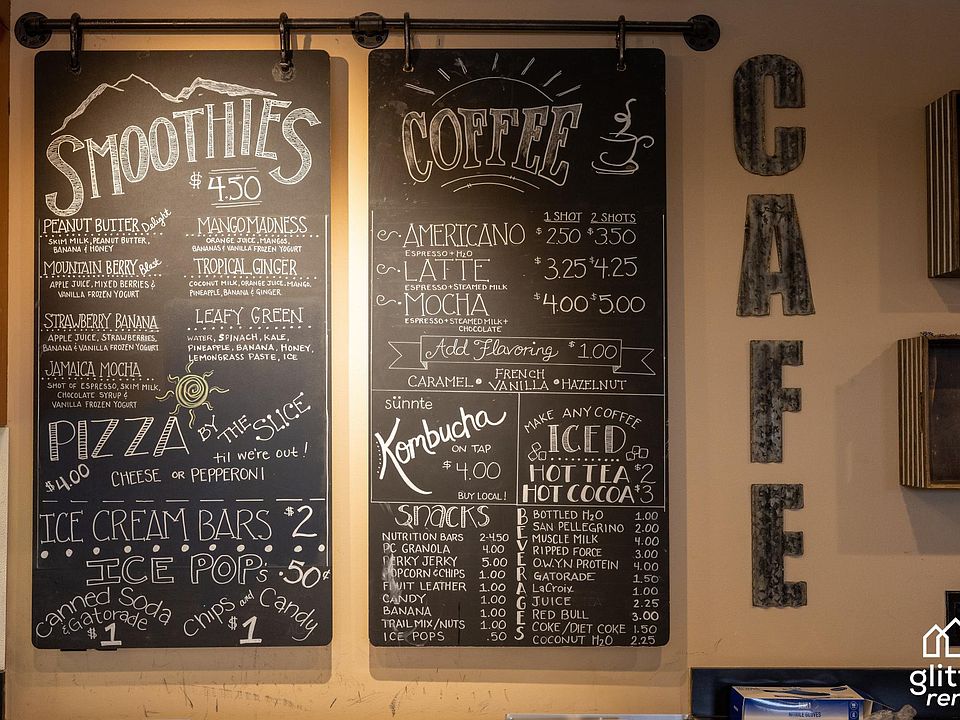 SMOOTHIES
$4.50
PEANUT BUTTER Delight
SKIM MILK, PEANUT BUTTER,
BANANA & HONEY
MOUNTAIN BERRY Blast
APPLE JUICE, MIXED BERRIES &
VANILLA FROZEN YOGURT
STRAWBERRY BANANA
APPLE JUICE, STRAWBERRIES,
BANANA & VANILLA FROZEN YOGURT
JAMAICA MOCHA
SHOT OF ESPRESSO, SKIM MILK,
CHOCOLATE SYRUP &
VANILLA FROZEN YOGURT
MANGO MADNESS
ORANGE JUICE, MANGOS,
BANANAS & VANILLA FROZEN YOGURT
TROPICAL GINGER
COCONUT MILK, ORANGE JUICE, MANGO,
PINEAPPLE, BANANA & GINGER
LEAFY GREEN
WATER, SPINACH, KALE,
PINEAPPLE, BANANA, HONEY,
LEMONGRASS PASTE, ICE
PIZZA BY THE SLICE
til we're out!
$4.00 CHEESE OR PEPPERONI
ICE CREAM BARS $2
ICE POP's .50¢
Canned Soda
& Gatorade
$1
Chips and Candy
$1
COFFEE
1 SHOT 2 SHOTS
AMERICANO $2.50 $3.50
ESPRESSO + H2O
LATTE $3.25 $4.25
ESPRESSO + STEAMED MILK
MOCHA $4.00 $5.00
ESPRESSO + STEAMED MILK +
CHOCOLATE
Add Flavoring $1.00
CARAMEL • FRENCH VANILLA • HAZELNUT
sünnte
Kombucha
ON TAP
$4.00
BUY LOCAL!
MAKE ANY COFFEE
ICED
HOT TEA $2
HOT COCOA $3
SNACKS
NUTRITION BARS 2-4.50
PC GRANOLA 4.00
PERKY JERKY 5.00
POPCORN & CHIPS 1.00
FRUIT LEATHER 1.00
CANDY 1.00
BANANA 1.00
TRAIL MIX/NUTS 1.00
ICE POPS .50
BEVERAGES
BOTTLED H2O 1.00
SAN PELLEGRINO 2.00
MUSCLE MILK 4.00
RIPPED FORCE 3.00
O.W.Y.N PROTEIN 4.00
GATORADE 1.50
LaCroix 1.00
JUICE 2.25
RED BULL 3.00
COKE/DIET COKE 1.50
COCONUT H2O 2.25
CAFE
NITRILE GLOVES